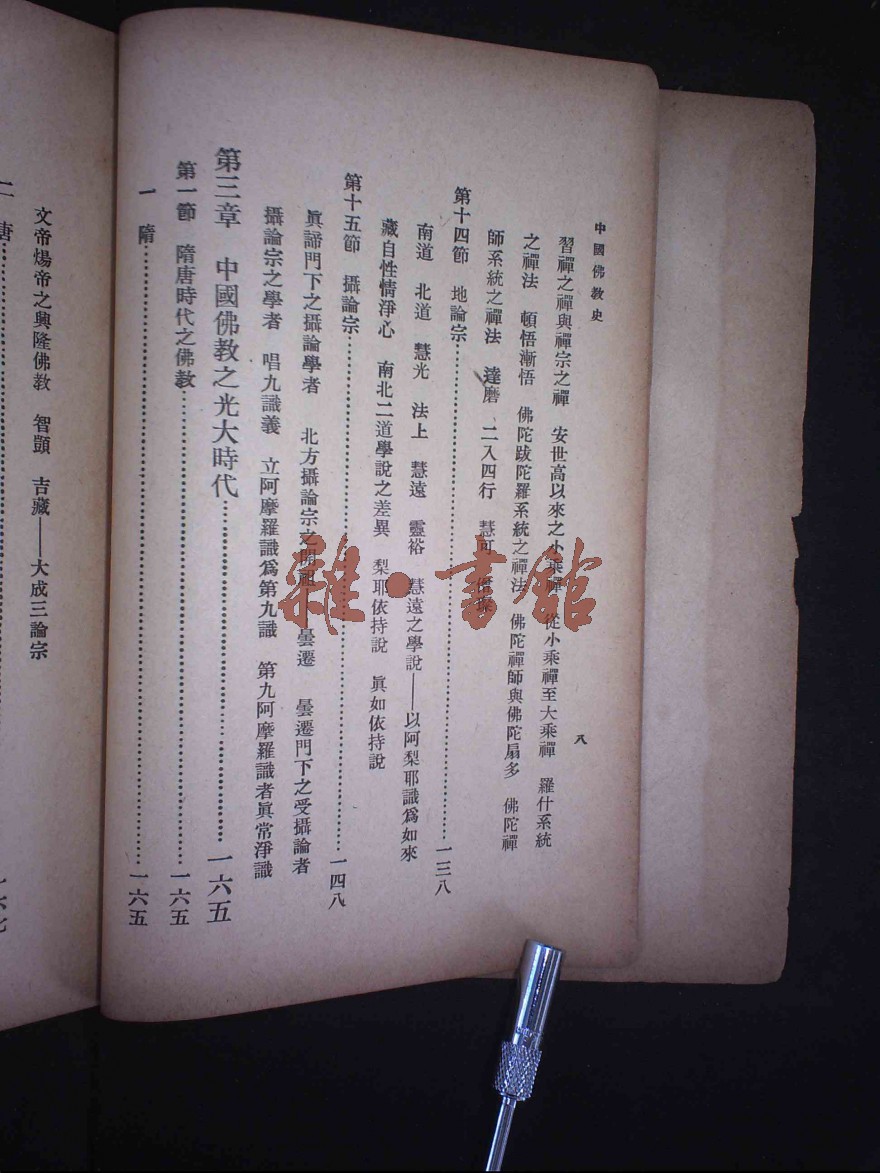 中國佛教史
八
習禪之禪與禪宗之禪　安世高以來之小乘禪　從小乘禪至大乘禪　羅什系統
之禪法　頓悟漸悟　佛陀跋陀羅系統之禪法　佛陀禪師與佛陀扇多　佛陀禪
師系統之禪法　達磨　二入四行　慧可　僧璨
第十四節　地論宗……一三八
南道　北道　慧光　法上　慧遠　靈裕　慧遠之學說——以阿梨耶識爲如來
藏自性情淨心　南北二道學說之差異　梨耶依持說　眞如依持說
第十五節　攝論宗……一四八
眞諦門下之攝論學者　北方攝論宗之開祖　曇遷　曇遷門下之受攝論者
攝論宗之學者　唱九識義　立阿摩羅識爲第九識　第九阿摩羅識者眞常淨識
第三章　中國佛教之光大時代……一六五
第一節　隋唐時代之佛教……一六五
一　隋……一六五
文帝煬帝之興隆佛教　智顗　吉藏——大成三論宗
二　唐……一六七
雜·書館